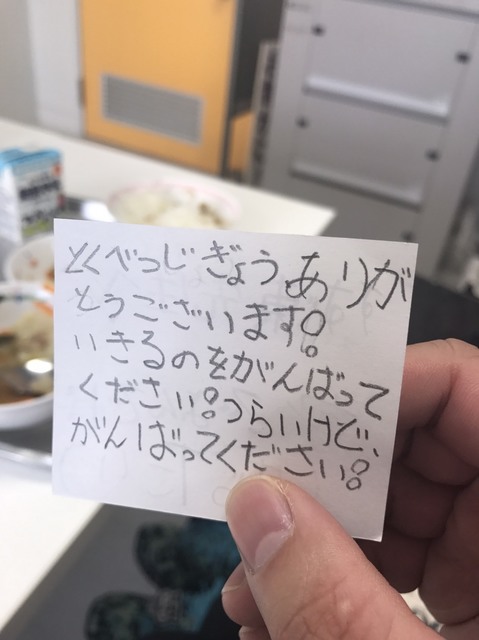 とくべつじぎょうありが
とうございます!
いきるのをがんばって
ください!つらいけど、
がんばってください!